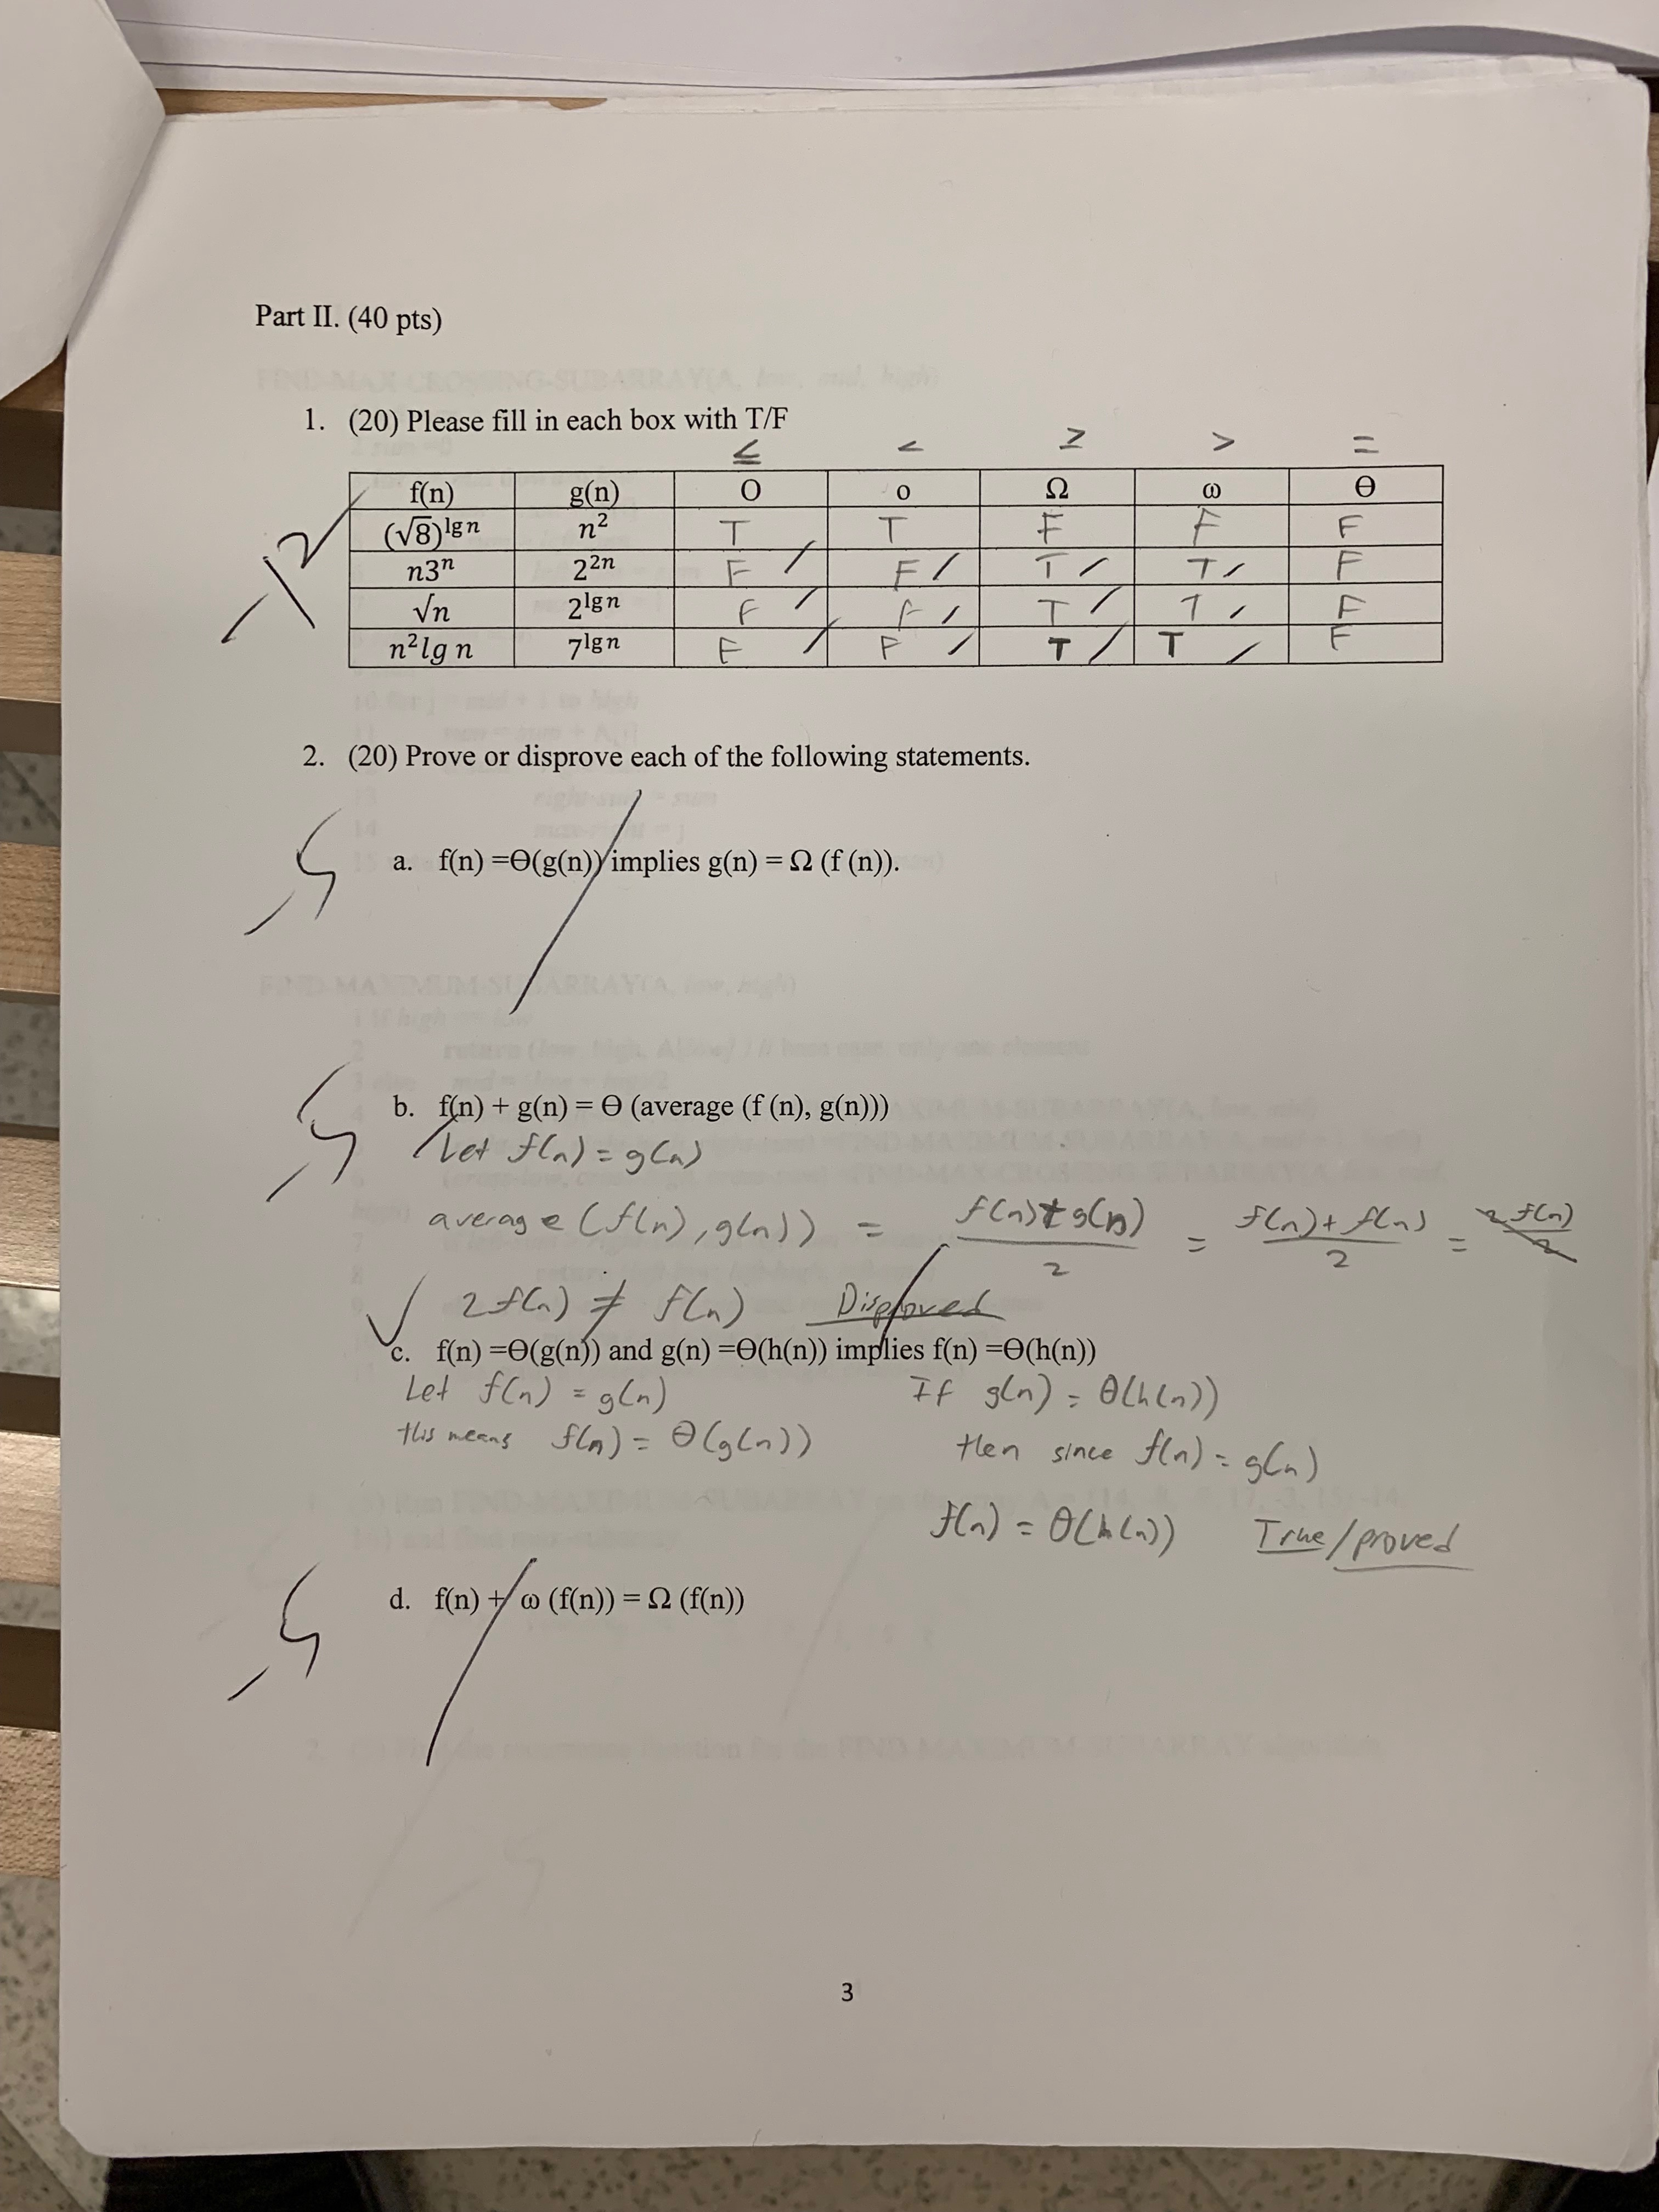 Part II. (40 pts)
1. (20) Please fill in each box with T/F
≤ < ≥ > =
f(n) g(n) O o Ω ω Θ
(√8)^lg n n² T T F F F
n3ⁿ 2²ⁿ F F T T F
√n 2^lg n F F T T F
n²lg n 7^lg n F F T T F
-12
2. (20) Prove or disprove each of the following statements.
-5
a. f(n) =Θ(g(n)) implies g(n) = Ω (f (n)).
-5
b. f(n) + g(n) = Θ (average (f (n), g(n)))
Let f(n) = g(n)
average (f(n), g(n)) = f(n)+g(n)/2 = f(n)+f(n)/2 = 2f(n)/2
✓ 2f(n) ≠ f(n) Disproved
c. f(n) =Θ(g(n)) and g(n) =Θ(h(n)) implies f(n) =Θ(h(n))
Let f(n) = g(n) If g(n) = Θ(h(n))
this means f(n) = Θ(g(n)) then since f(n) = g(n)
f(n) = Θ(h(n)) True/proved
-5
d. f(n) + ω (f(n)) = Ω (f(n))
3